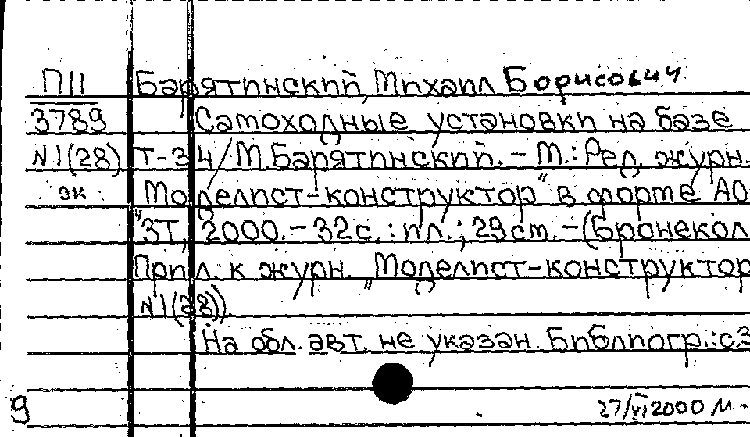 П11 Барятинский, Михаил Борисович
3789 Самоходные установки на базе
N1(28) Т-34/М.Барятинский. – М.: Ред. журн.
эк. "Моделист-конструктор" в форме АО
"ЗТ, 2000. – 32с. : ил.; 29 см. – (Бронекол
Прил. к журн. "Моделист-конструктор
N1(28))
На обл. авт. не указан. Библиогр.: с.3
9 27/VI 2000 М.